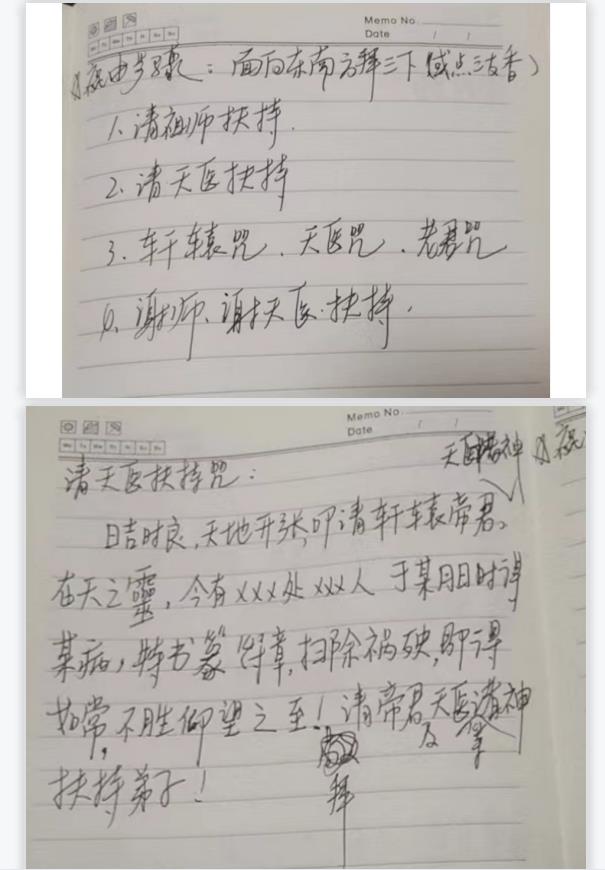 Memo No.
Date / /
祝由步骤：面向东南方拜三下（或点三支香）
1、请祖师扶持.
2、请天医扶持
3、轩辕咒、天医咒、老君咒
谢师、谢天医扶持.
Memo No.
Date / /
天医诸神
请天医扶持咒：
日吉时良，天地开张，叩请轩辕帝君、
在天之靈，今有xxx处xxx人于某月日时得
某病，特书篆符章，扫除祸殃，即得
如常，不胜仰望之至！请帝君天医诸神
及
拜
扶持弟子！